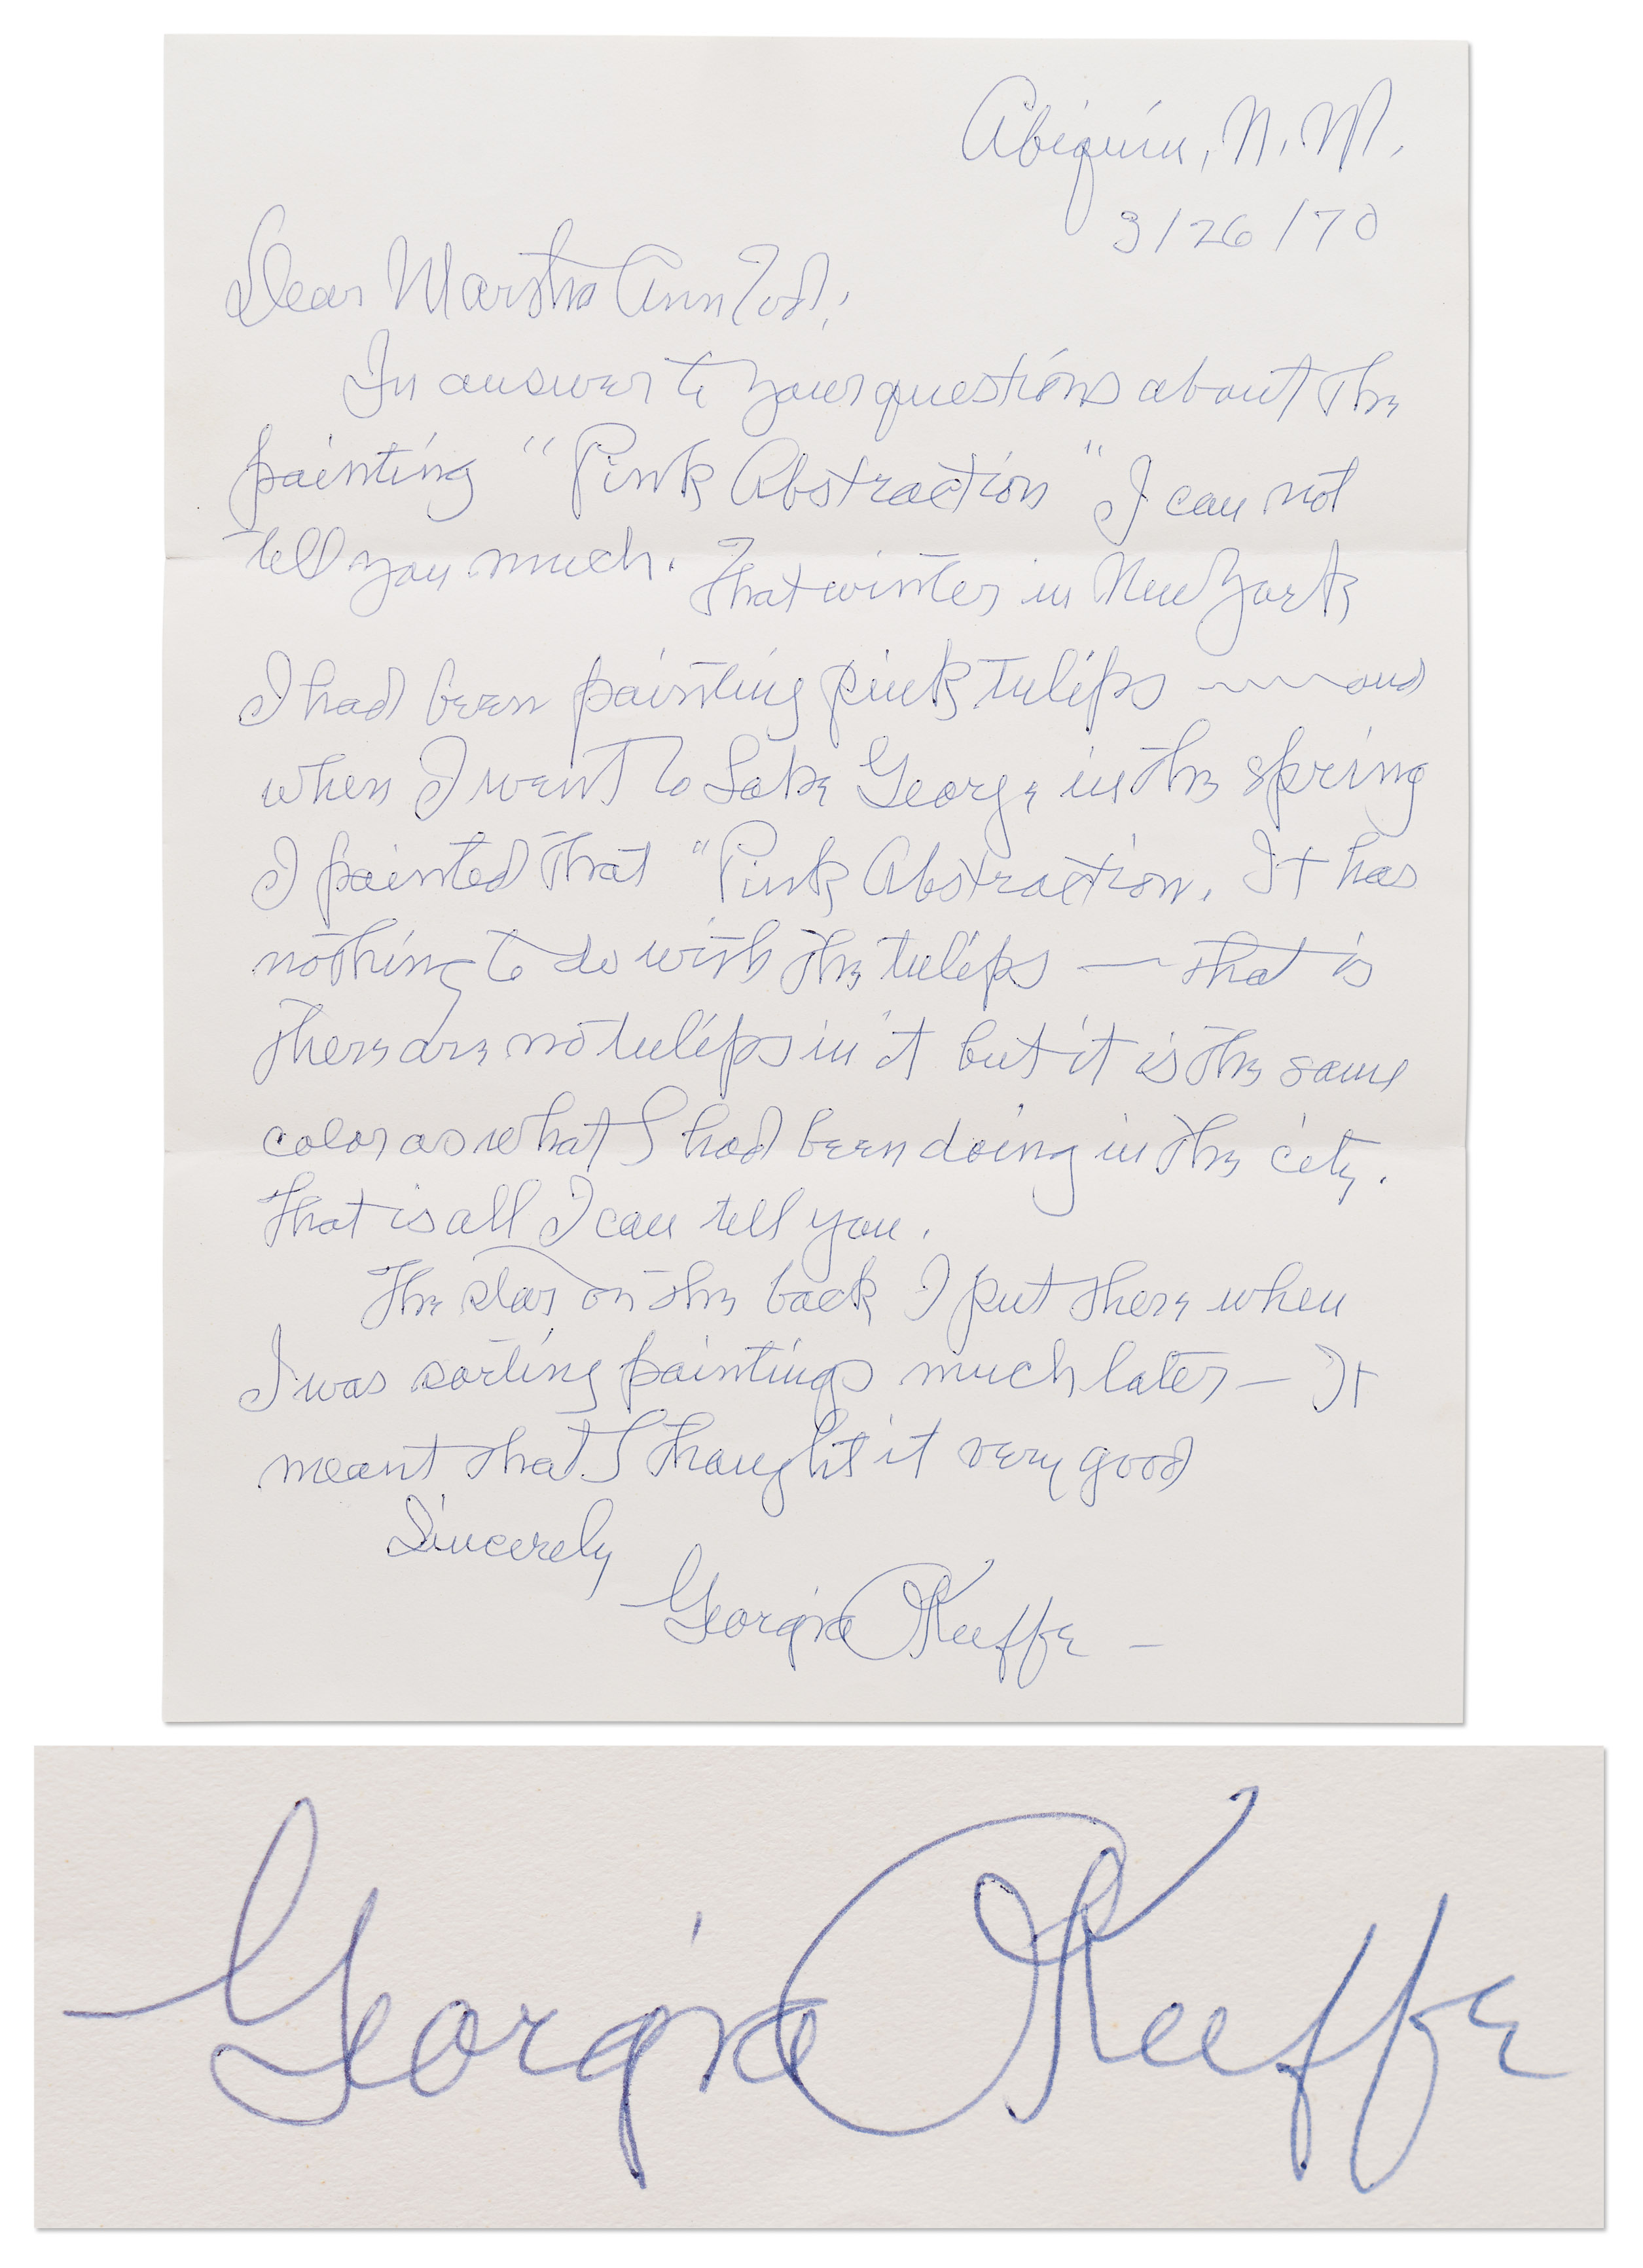 Abiquiu, N.M.
3/26/70
Dear Marsha Ann Tod;
In answer to your questions about the
painting "Pink Abstraction" I can not
tell you much. That winter in New York
I had been painting pink tulips ~~~ and
when I went to Lake George in the spring
I painted that "Pink Abstraction. It has
nothing to do with the tulips — that is
there are no tulips in it but it is the same
color as what I had been doing in the city.
That is all I can tell you.
The star on the back I put there when
I was sorting paintings much later — It
meant that I thought it very good
Sincerely
Georgia O'Keeffe —
Georgia O'Keeffe